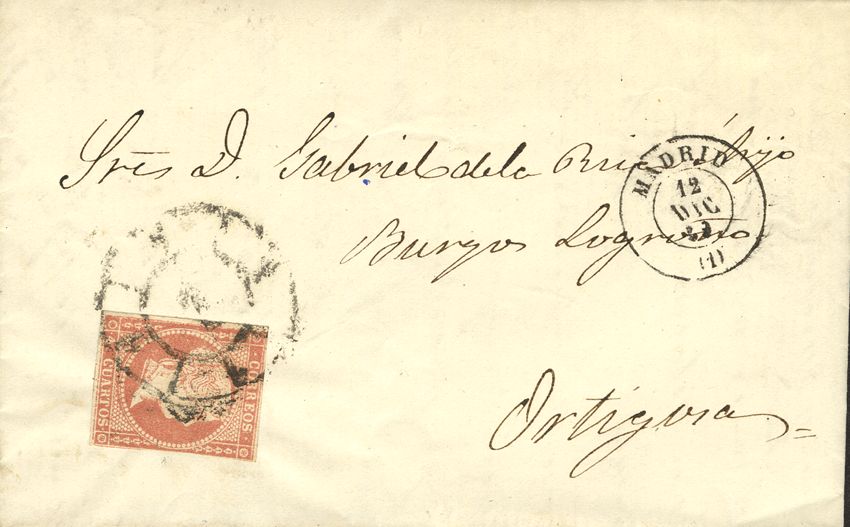 Sres D. Gabriel de la Riva é hijo
Burgos Logroño
Ortigosa
MADRID
12
DIC
(1)
CORREOS
CUARTOS